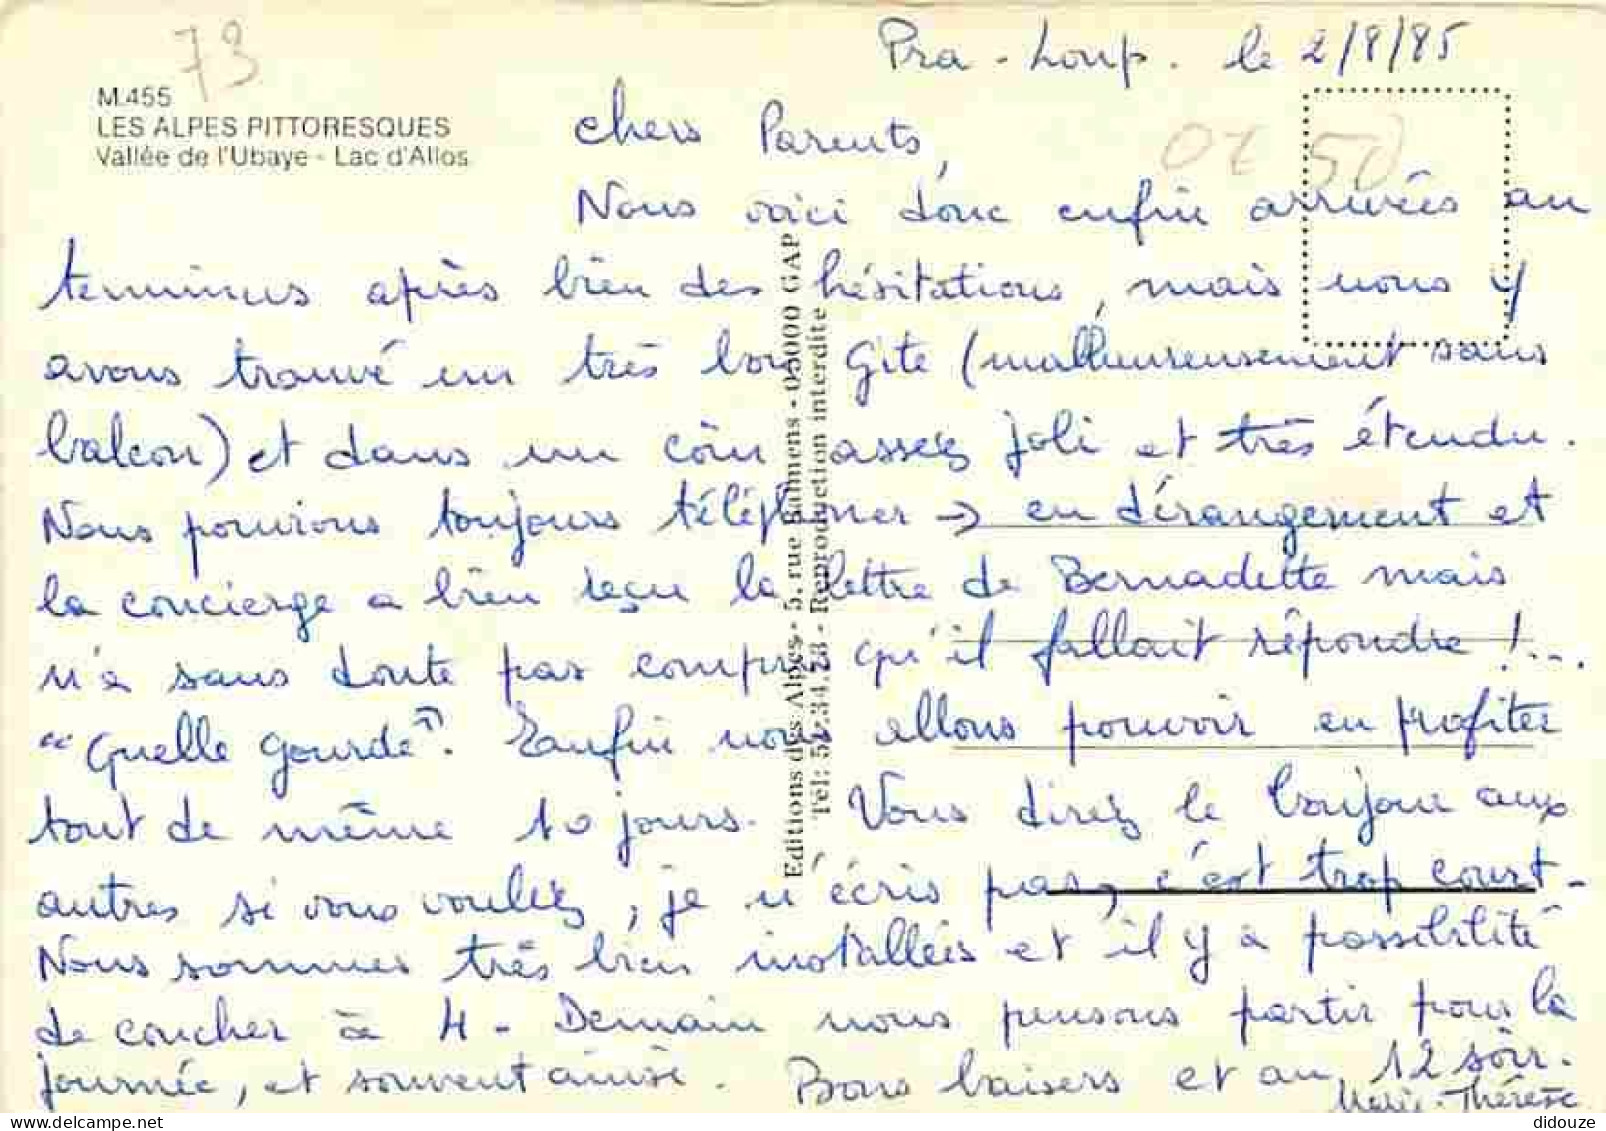 73
Pra-Loup. le 2/8/85
M.455
LES ALPES PITTORESQUES
Vallée de l'Ubaye - Lac d'Allos
Chers Parents,
Nous voici donc enfin arrivées au
terminus après bien des hésitations, mais nous y
avons trouvé un très bon gite (malheureusement sans
balcon) et dans un coin assez joli et très étendu.
Nous pouvions toujours téléphoner → en dérangement et
la concierge a bien reçu la lettre de Bernadette mais
n'a sans doute pas compris qu'il fallait répondre !...
"Quelle gourde". Enfin nous allons pouvoir en profiter
tout de même 10 jours. Vous direz le bonjour aux
autres si vous voulez, je n'écris pas, c'est trop court-
Nous sommes très bien installées et il y a possibilité
de coucher à 4 - Demain nous pensons partir pour la
journée, et souvent ainsi. Bons baisers et au 12 soir.
Marie-Thérèse
Editions des Alpes - 5, rue - 05000 GAP
- Reproduction interdite
didouze